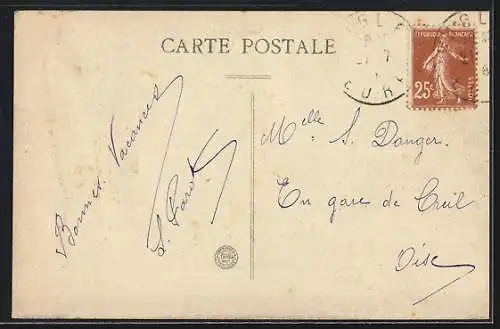 CARTE POSTALE
RÉPUBLIQUE FRANÇAISE
25c
POSTES
Bonnes Vacances
Melle S. Danger
En gare de Creil
Oise